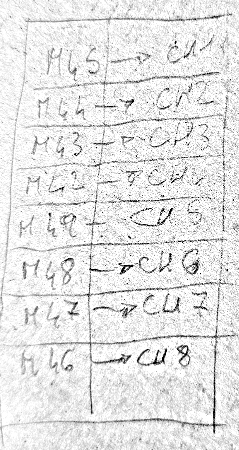 M45 → CH1
M44 → CH2
M43 → CH3
M42 → CH4
M49 - CH5
M48 → CH6
M47 → CH7
M46 → CH8